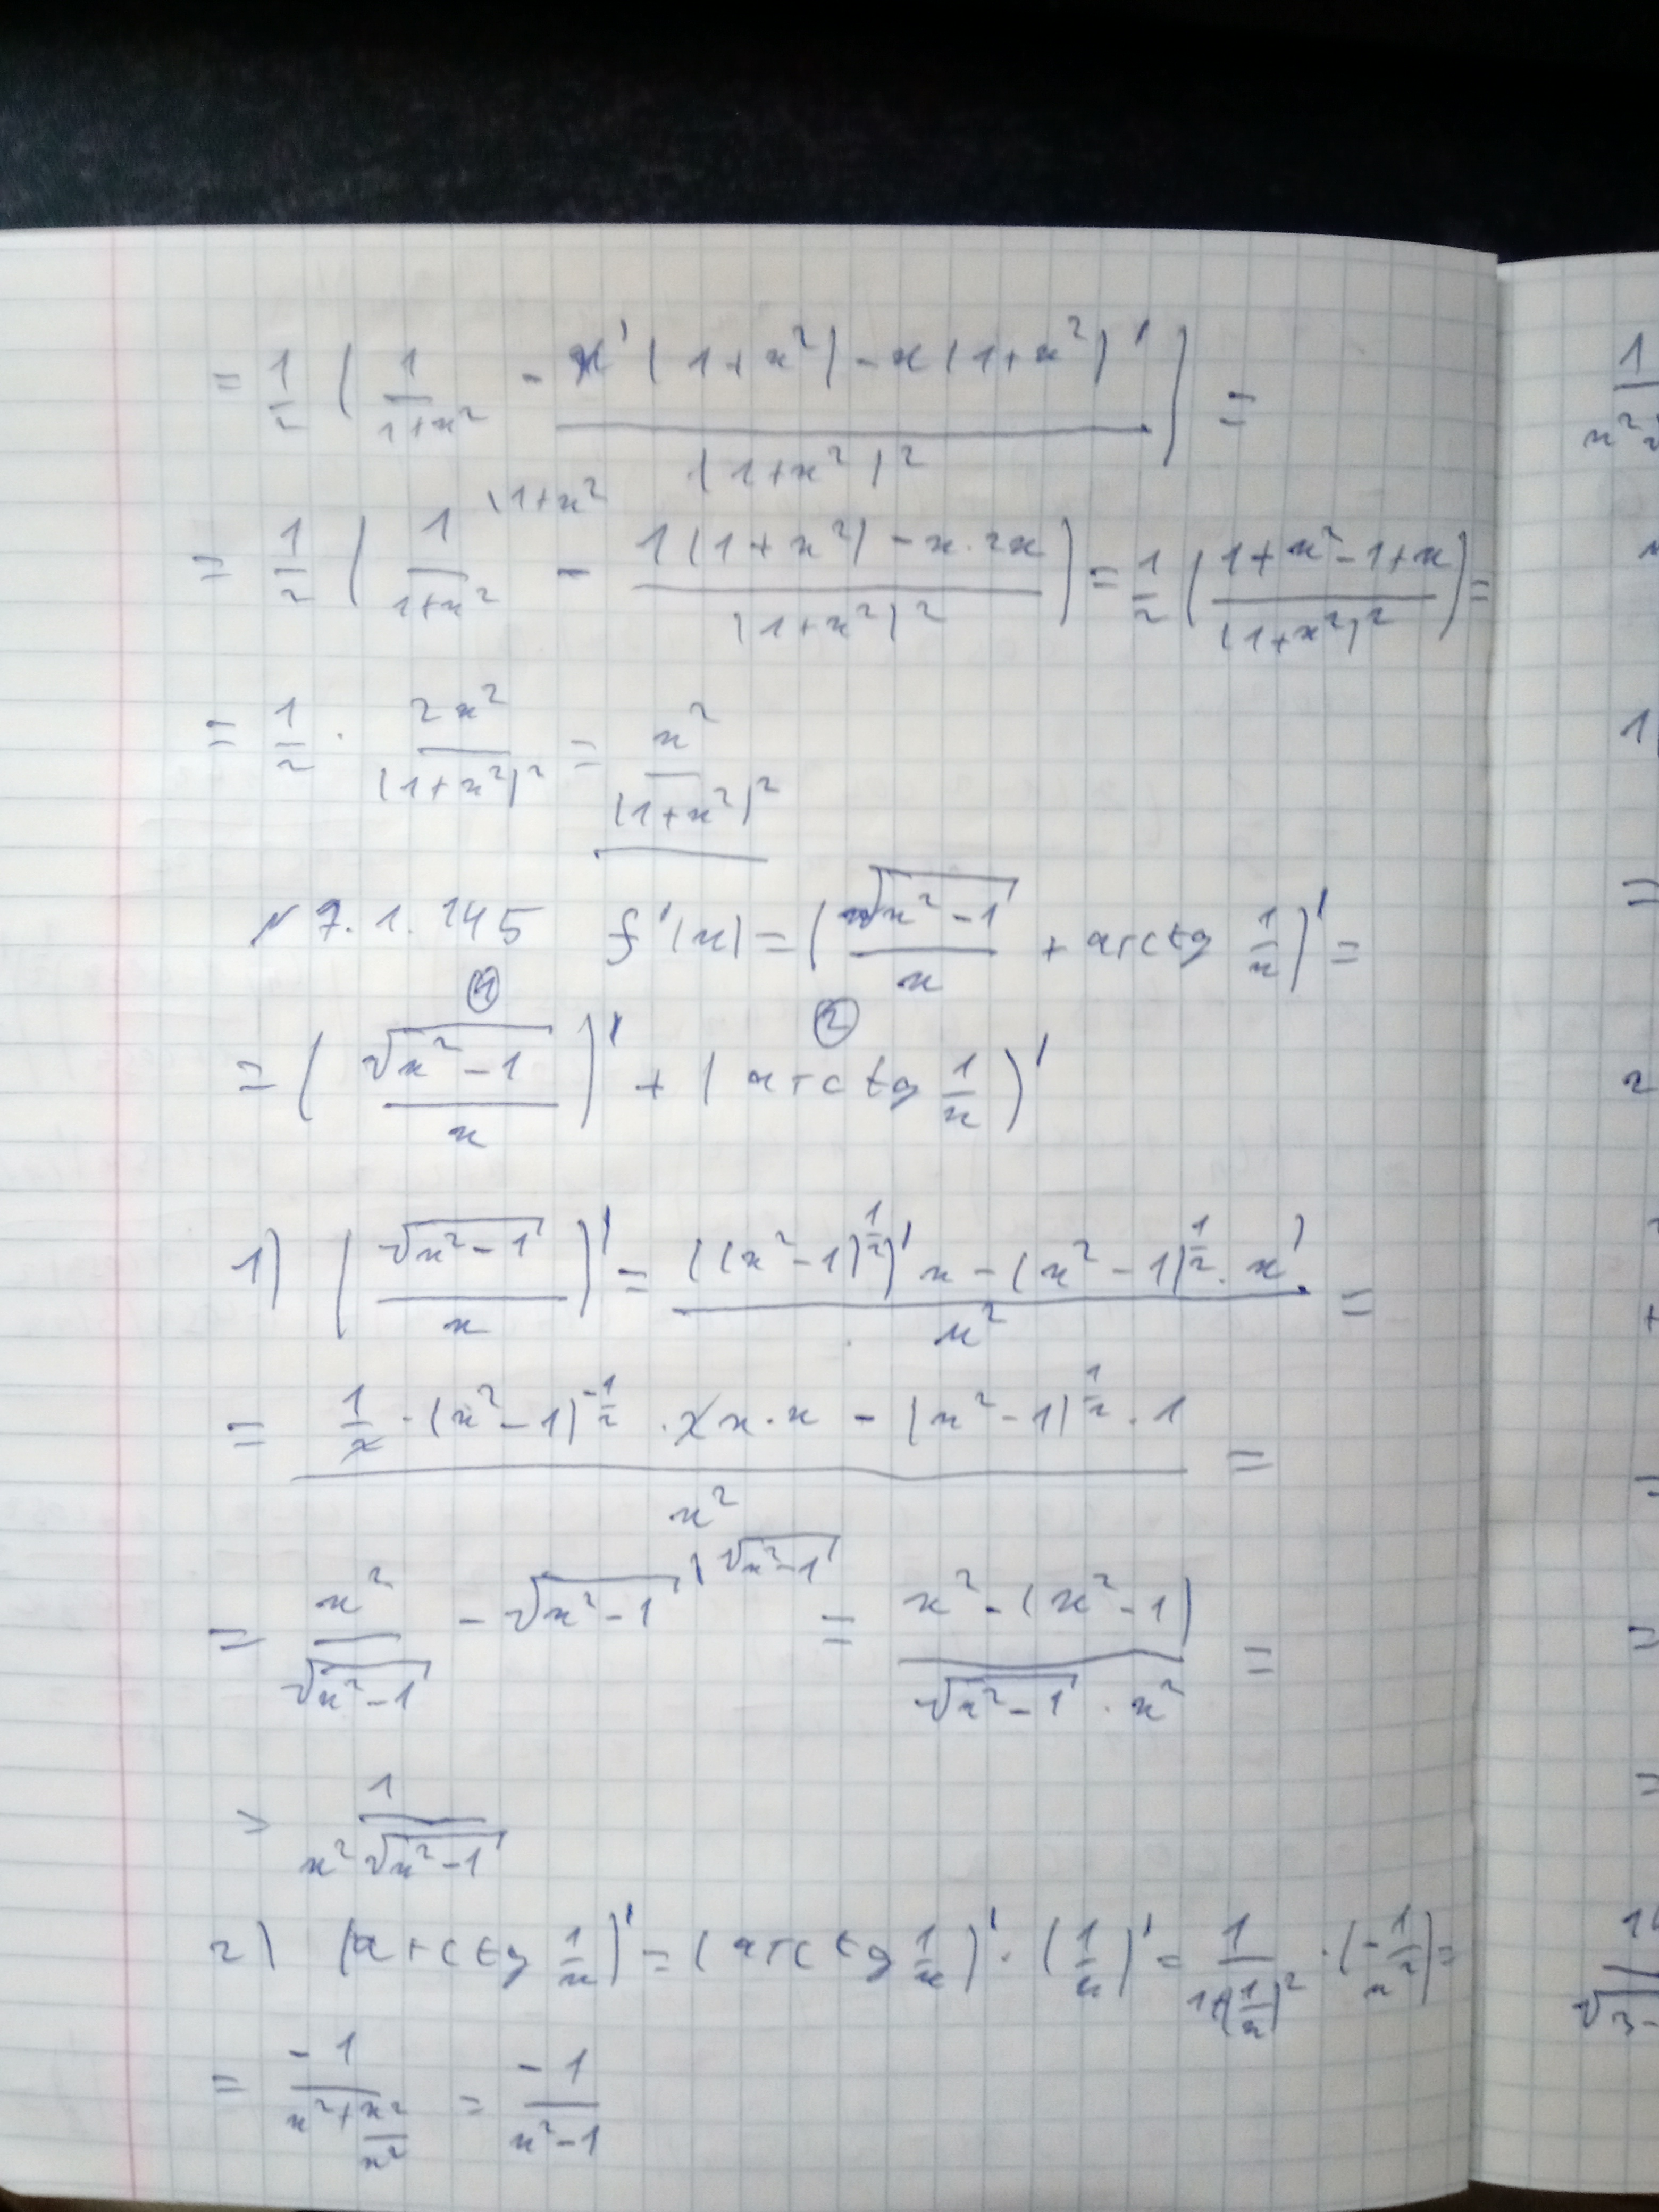 = 1/2 ( 1/(1+x²) - (x'(1+x²) - x(1+x²)')/(1+x²)² ) =
= 1/2 ( 1/(1+x²) (1+x² - (1(1+x²) - x·2x)/(1+x²)² ) = 1/2 ( (1+x²-1+x)/(1+x²)² ) =
= 1/2 · 2x²/(1+x²)² = x²/(1+x²)²
№ 7.1.145 f'(x) = ( √(x²-1)/x + arctg 1/x )' =
① ②
= ( √(x²-1)/x )' + ( arctg 1/x )'
1) ( √(x²-1)/x )' = ( ((x²-1)^(1/2))' x - (x²-1)^(1/2) · x' )/x² =
= ( 1/2 · (x²-1)^(-1/2) · 2x·x - (x²-1)^(1/2) · 1 )/x² =
= x²/√(x²-1) - √(x²-1) (√(x²-1) = (x²-(x²-1))/(√(x²-1) · x²) =
= 1/(x²√(x²-1))
2) (arctg 1/x)' = (arctg 1/x)' · (1/x)' = 1/(1+(1/x)²) · (-1/x²) =
= -1/(x²+x²/x²) = -1/(x²-1)